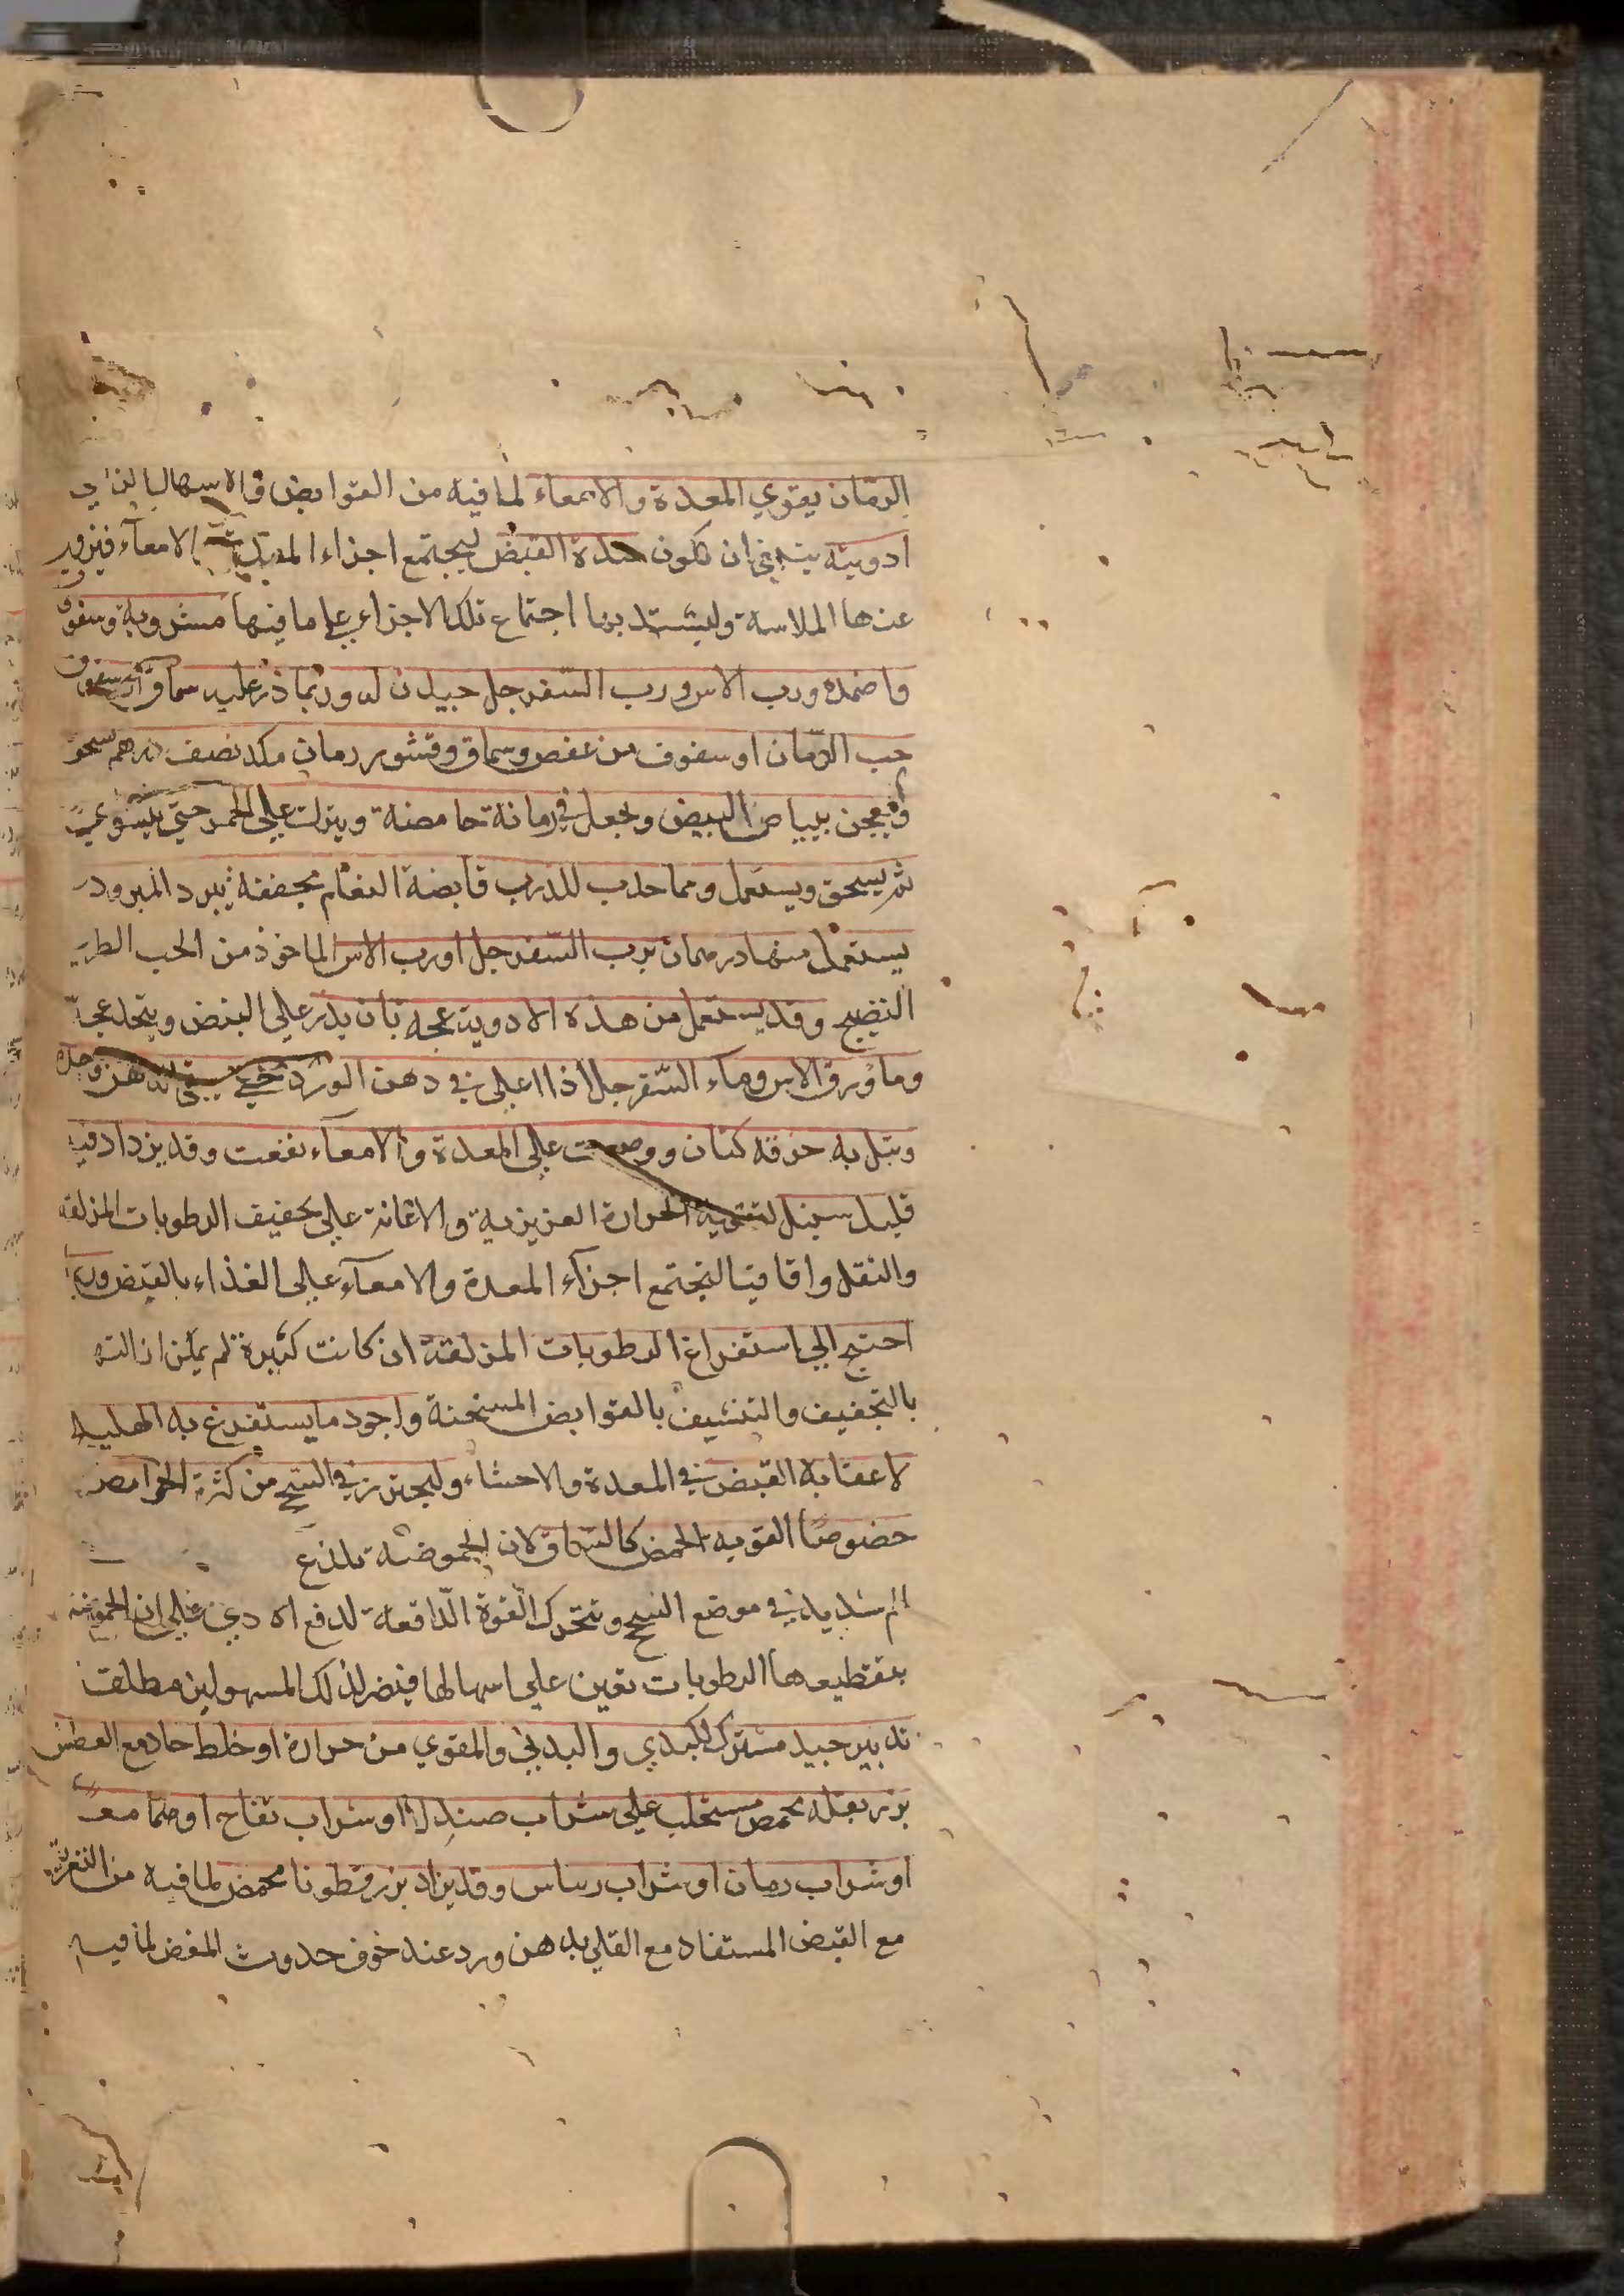 الرمان يقوي المعدة والامعاء لما فيه من القوابض والاسهال الذي
ادويته ينبغي ان تكون هذه القبض ليجتمع اجزاء المعدة والامعآء فيزول
عنها الملاسة وليشتد بها اجتماع تلك الاجزاء علي ما فيها مشروبة وسفوف
واضمده ورب الاس ورب السفرجل جيدان له وربما ذر عليه سماق او سفوف
حب الرمان او سفوف من عفص وسماق وقشور رمان مكد نصف درهم يسحق
ويعجن ببياض البيض ويجعل في رمانة حامضة ويترك علي الجمر حتي يشوي
ثم يسحق ويستعمل ومما جرب للذرب قابضة النعام مجففة تبرد المبرود
يستعمل منها درهمان برب السفرجل او رب الاس الماخوذ من الحب الطري
النضيج وقد يستعمل من هذه الادوية عجه بان يذر علي البيض ويتخذ عجة
وماورق الاس وماء السفرجل اذا اغلي في دهن الورد حتي يبقي الدهن وحده
وتبل به خرقه كتان ووضعت علي المعدة والامعآء نفعت وقد يزداد فيه
قليل سنبل لتقوية الحرارة الغريزية والاعانة علي تجفيف الرطوبات المزلقه
والثقل واقاقيا لتجتمع اجزآء المعدة والامعآء علي الغذاء بالقبض وربما
احتيج الي استفراغ الرطوبات المزلقة ان كانت كثيرة لم يمكن ازالته
بالتجفيف والتنشيف بالقوابض المسخنة واجود ما يستفرغ به الهليله
لاعقابه القبض في المعدة والاحشاء وليجترز في السحج من كثرة الحوامض
خصوصا القويه الحمض كالسماق لان الحموضة تلذع
الم شديد في موضع السحج وتتحرك القوة الدافعة لدفع الاذي علي ان الحموضة
بتقطيعها الرطوبات تعين علي اسهالها فيضر لذلك المسهولين مطلقا
تدبير جيد مشترك للكبدي والبدني والمقوي من حرارة او خلط حاد مع العطش
بزر بقله محمص مستحلب علي شراب صندل او شراب تفاح او هما معا
او شراب رمان او شراب رساس وقد يزاد بزر قطونا محمص لما فيه من التغرية
مع القبض المستفاد مع القلي بدهن ورد عند خوف حدوث المغص لما فيه